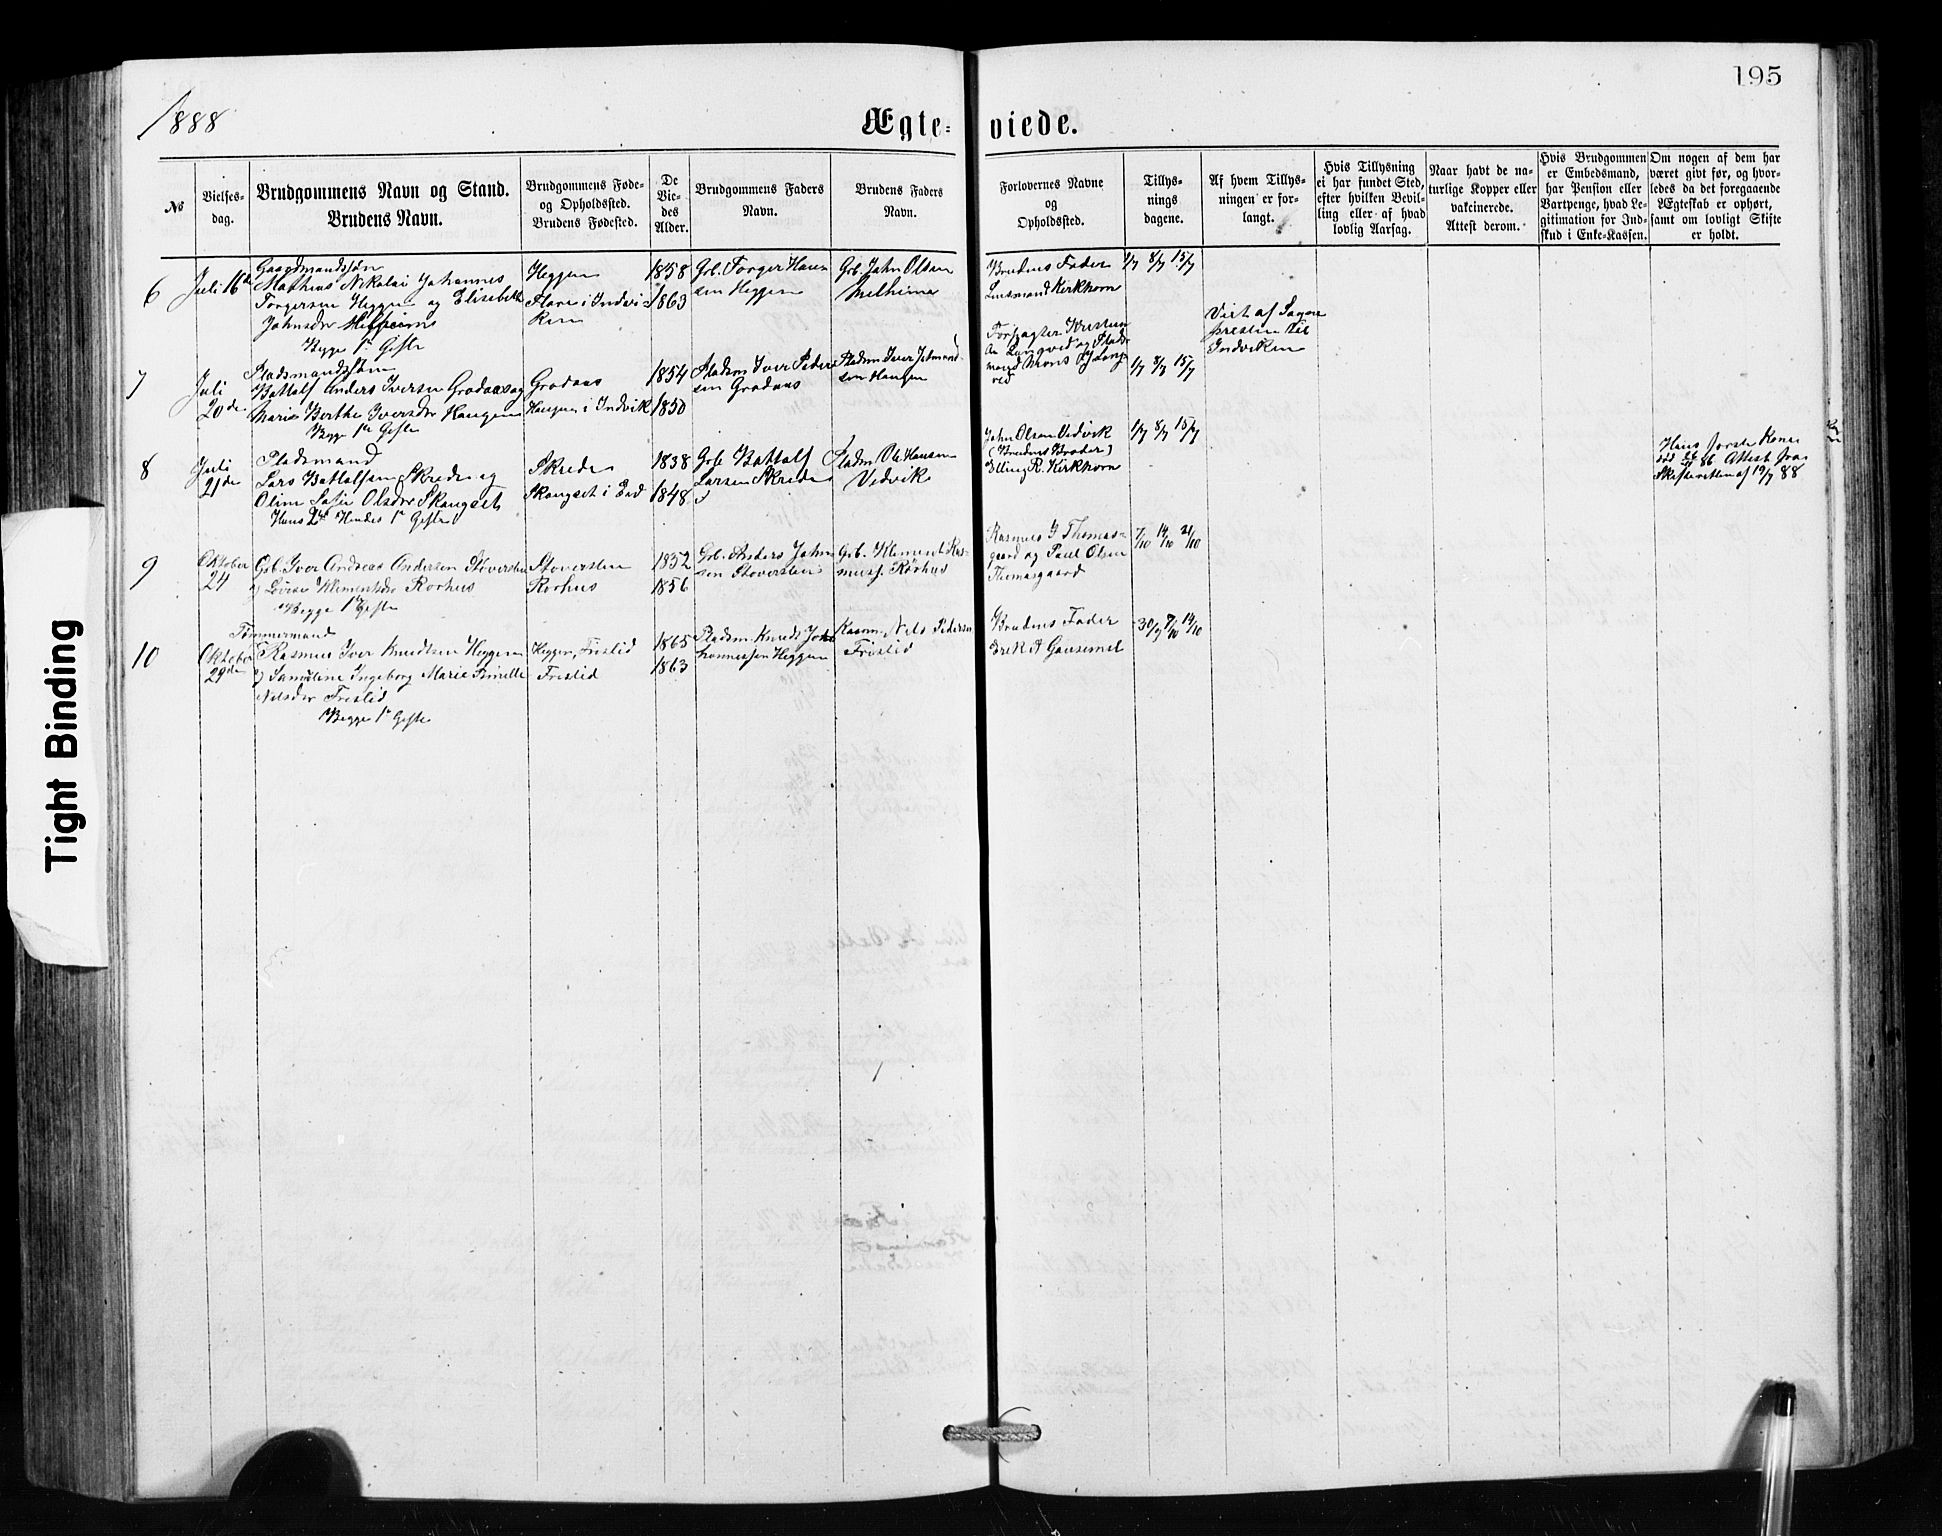 195
1888
Ægte-viede.
№
Vielses-
dag.
Brudgommens Navn og Stand.
Brudens Navn.
Brudgommens Føde-
og Opholdssted.
Brudens Fødested.
De
Vie-
des
Alder.
Brudgommens Faders
Navn.
Brudens Faders
Navn.
Forlovernes Navne
og
Opholdssted.
Tillys-
nings
dagene.
Af hvem Tillys-
ningen er for-
langt.
Hvis Tillysning
ei har fundet Sted,
efter hvilken Bevil-
ling eller af hvad
lovlig Aarsag.
Naar havt de na-
turlige Kopper eller
vakcinerede.
Attest derom.
Hvis Brudgommen
er Embedsmand,
har Pension eller
Vartpenge, hvad Le-
gitimation for Ind-
skud i Enke-Kassen.
Om nogen af dem har
været givt før, og hvor-
ledes da det foregaaende
Ægteskab er ophørt,
samt om lovligt Skifte
er holdt.
6
Juli 16de
Gaardmandssøn
Mathias Nikolai Johannes
Torgersen Heggen og Elisebeth
Johnsdr
Begge 1ste Gifte
Heggen
i Indvi-
ken
1858
1863
Grb. Torger Han-
sen Heggen
Grb. John Olsen
Melheim
Brudens Fader
Lensmand Kirkhorn
1/7 8/7 15/7
Vist af Sogne
presten til
Indviken
7
Juli
20de
Pladsmandssøn
Battolf Anders Iversen Grodaas og
Marie Berthe Iversdr Haugen
Begge 1ste Gifte
Grodaas
Haugen i Indvik
1854
1850
Pladsm Iver Peder-
sen Grodaas
Pladsm Iver
sen Haugen
Forpagter Kristen
Langved og Plads-
mand Mons Lang-
ved
1/7 8/7 15/7
8
Juli
21de
Pladsmand
Lars Battolfsen Skrede og
Oline Sofie Olsdr Skangset
Hans 2det Hendes 1ste Gifte
Skrede
Skangset i Eid
1838
1848
Grb. Battolf
Larsen Skrede
Pladsm Ole Hansen
Vedvik
John Olsen Vedvik
(Brudens Broder)
Elling R. Kirkhorn
1/7 8/7 15/7
Hans første Kone
død 86 Attest fra
Skifteretten af 19/7 88
9
Oktober
24
Grb. Iver Andreas Andersen Støversten
og Lovise Klementsdr Rørhus
Begge 1ste Gifte
Støversten
Rørhus
1852
1856
Grb. Anders John-
sen Støversten
Grb. Klement Ras-
muss. Rørhus
Rasmus P Thomas-
gaard og Paul Olsen
Thomasgaard
7/10 14/10 21/10
10
Oktober
29de
Tømmermand
Rasmus Iver Knudsen Heggen
og Samueline Ingeborg Marie Pernille
Nilsdr Frislid
Begge 1ste Gifte
Heggen, Frislid
Frislid
1865
1863
Pladsm. Knud Jo-
hannessen Heggen
Nils Pedersen
Frislid
Brudens Fader
Erek P Gausemel
30/9 7/10 14/10
Tight Binding